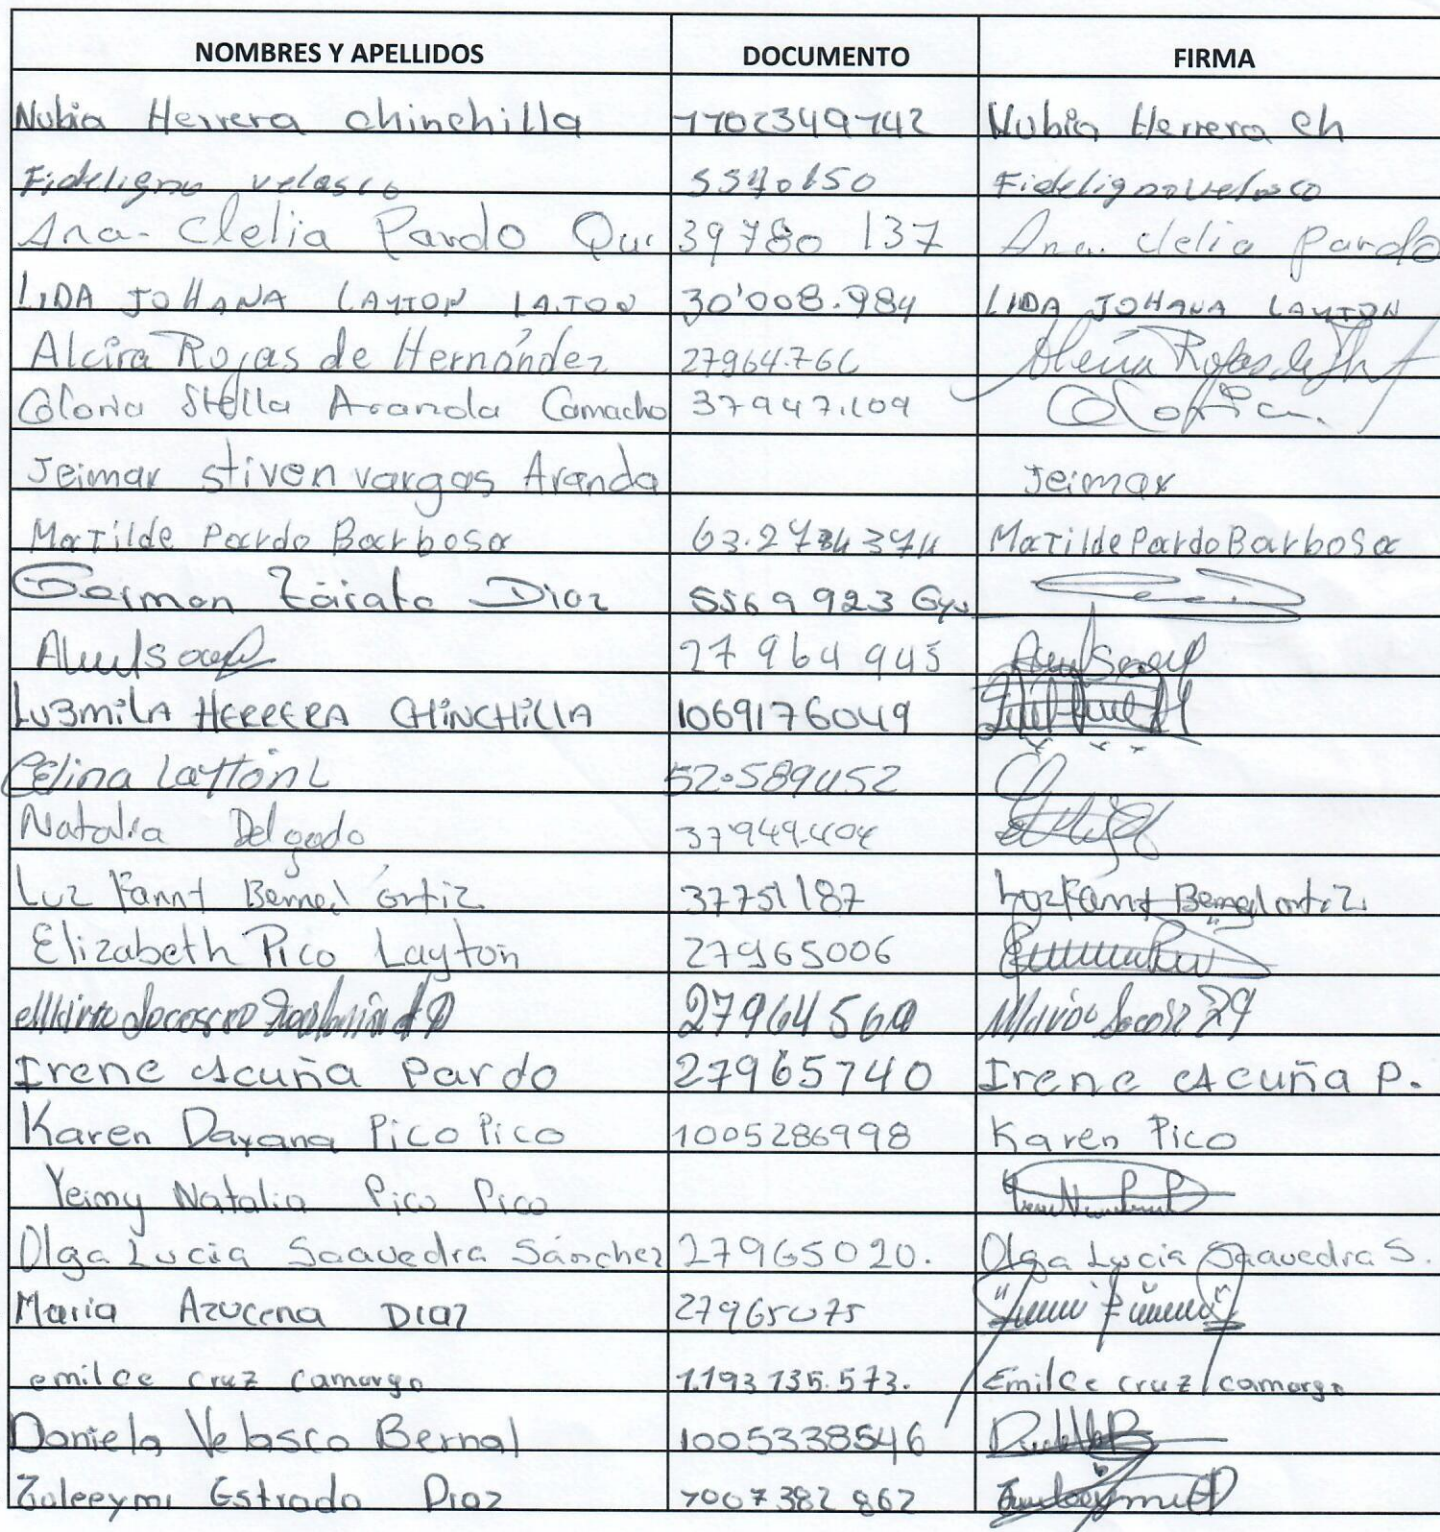 NOMBRES Y APELLIDOS DOCUMENTO FIRMA
Nubia Herrera chinchilla 1102349142 Nubia Herrera ch
Fideligno velasco 5570150 Fideligno velasco
Ana Clelia Pardo Qui 39780 137 Ana Clelia Pardo
LIDA JOHANA LAYTON LATON 30'008.984 LIDA JOHANA LAYTON
Alcira Rojas de Hernández 27964.766 Alcira Rojas de
Gloria Stella Aranda Camacho 37947.109
Jeimar stiven vargas Aranda Jeimar
MaTilde Pardo Barbosa MaTilde Pardo Barbosa
German Zárate Diaz 5569923
27 964 945
Luzmila HERRERA CHINCHILLA 1069176049
Celina Layton L 52.589452
Natalia Delgado 37949.404
Luz Fanny Bernal ortiz 37751187 Luz Fanny Bernal ortiz
Elizabeth Pico Layton 27965006
27964560
Irene Acuña Pardo 27965740 Irene Acuña P.
Karen Dayana Pico Pico 1005286998 Karen Pico
Yeimy Natalia Pico Pico
Olga Lucia Saavedra Sánchez 27965020. Olga Lucia Saavedra S.
Maria Azucena Diaz 27965075
emilce cruz camargo 1.193 135.573. Emilce cruz camargo
Daniela Velasco Bernal 1005338546
Zuleeymi Estrada Diaz 1007382 862